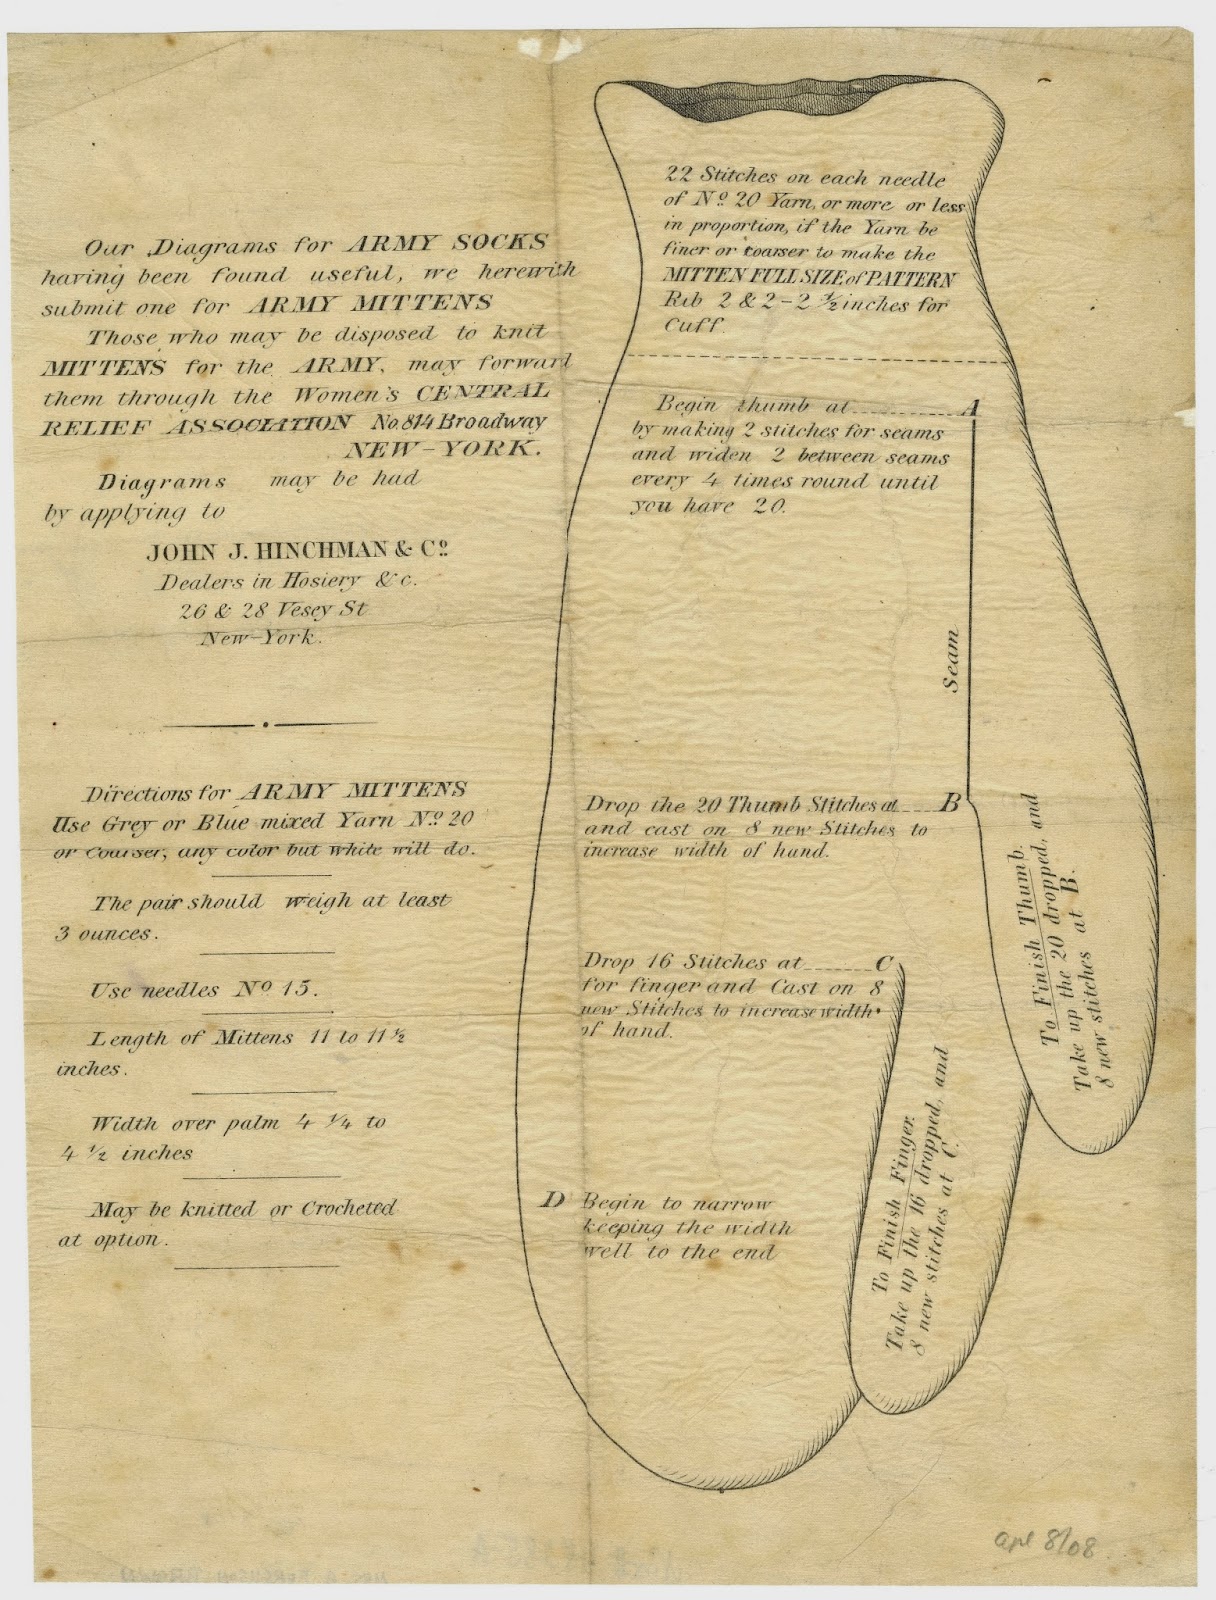 Our Diagrams for ARMY SOCKS
having been found useful, we herewith
submit one for ARMY MITTENS
Those who may be disposed to knit
MITTENS for the ARMY, may forward
them through the Women's CENTRAL
RELIEF ASSOCIATION No. 814 Broadway
NEW-YORK.
Diagrams may be had
by applying to
JOHN J. HINCHMAN & Co.
Dealers in Hosiery &c.
26 & 28 Vesey St
New-York.
Directions for ARMY MITTENS
Use Grey or Blue mixed Yarn No. 20
or Coarser, any color but white will do.
The pair should weigh at least
3 ounces.
Use needles No 15.
Length of Mittens 11 to 11 1/2
inches.
Width over palm 4 1/4 to
4 1/2 inches
May be knitted or Crocheted
at option.
22 Stitches on each needle
of No. 20 Yarn, or more or less
in proportion, if the Yarn be
finer or coarser to make the
MITTEN FULL SIZE of PATTERN
Rib 2 & 2 - 2 1/2 inches for
Cuff.
Begin thumb at A
by making 2 stitches for seams
and widen 2 between seams
every 4 times round until
you have 20.
Seam
Drop the 20 Thumb Stitches at B
and cast on 8 new Stitches to
increase width of hand.
To Finish Thumb.
Take up the 20 dropped, and
8 new stitches at B.
Drop 16 Stitches at C
for finger and Cast on 8
new Stitches to increase width
of hand.
To Finish Finger.
Take up the 16 dropped, and
8 new stitches at C.
D Begin to narrow
keeping the width
well to the end
apl 8/08